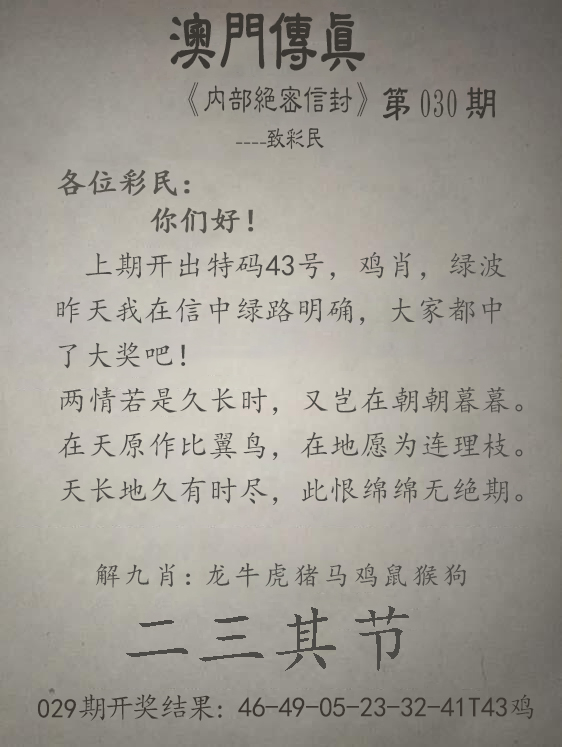 澳門傳真
《内部絕密信封》第030期
----致彩民
各位彩民：
你们好！
上期开出特码43号，鸡肖，绿波
昨天我在信中绿路明确，大家都中
了大奖吧！
两情若是久长时，又岂在朝朝暮暮。
在天原作比翼鸟，在地愿为连理枝。
天长地久有时尽，此恨绵绵无绝期。
解九肖：龙牛虎猪马鸡鼠猴狗
二三其节
029期开奖结果：46-49-05-23-32-41T43鸡